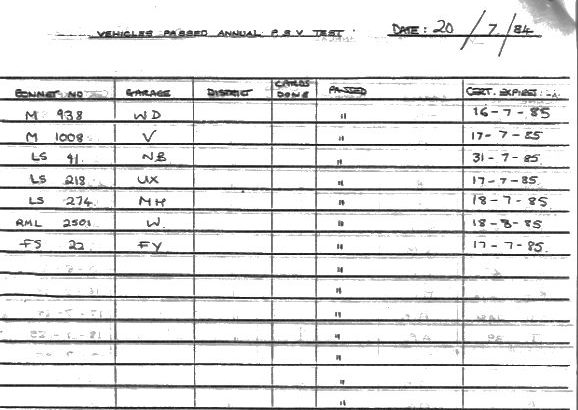 VEHICLES PASSED ANNUAL P.S.V TEST. DATE: 20/7/84
BONNET NO GARAGE DISTRICT CARDS DONE PASSED CERT. EXPIRES
M 938 WD " 16-7-85
M 1008 V " 17-7-85
LS 41 NB " 31-7-85
LS 218 UX " 17-7-85
LS 274 MH " 18-7-85
RML 2501 W. " 18-8-85
FS 22 FY " 17-7-85
"
"
"
"
"
"
"